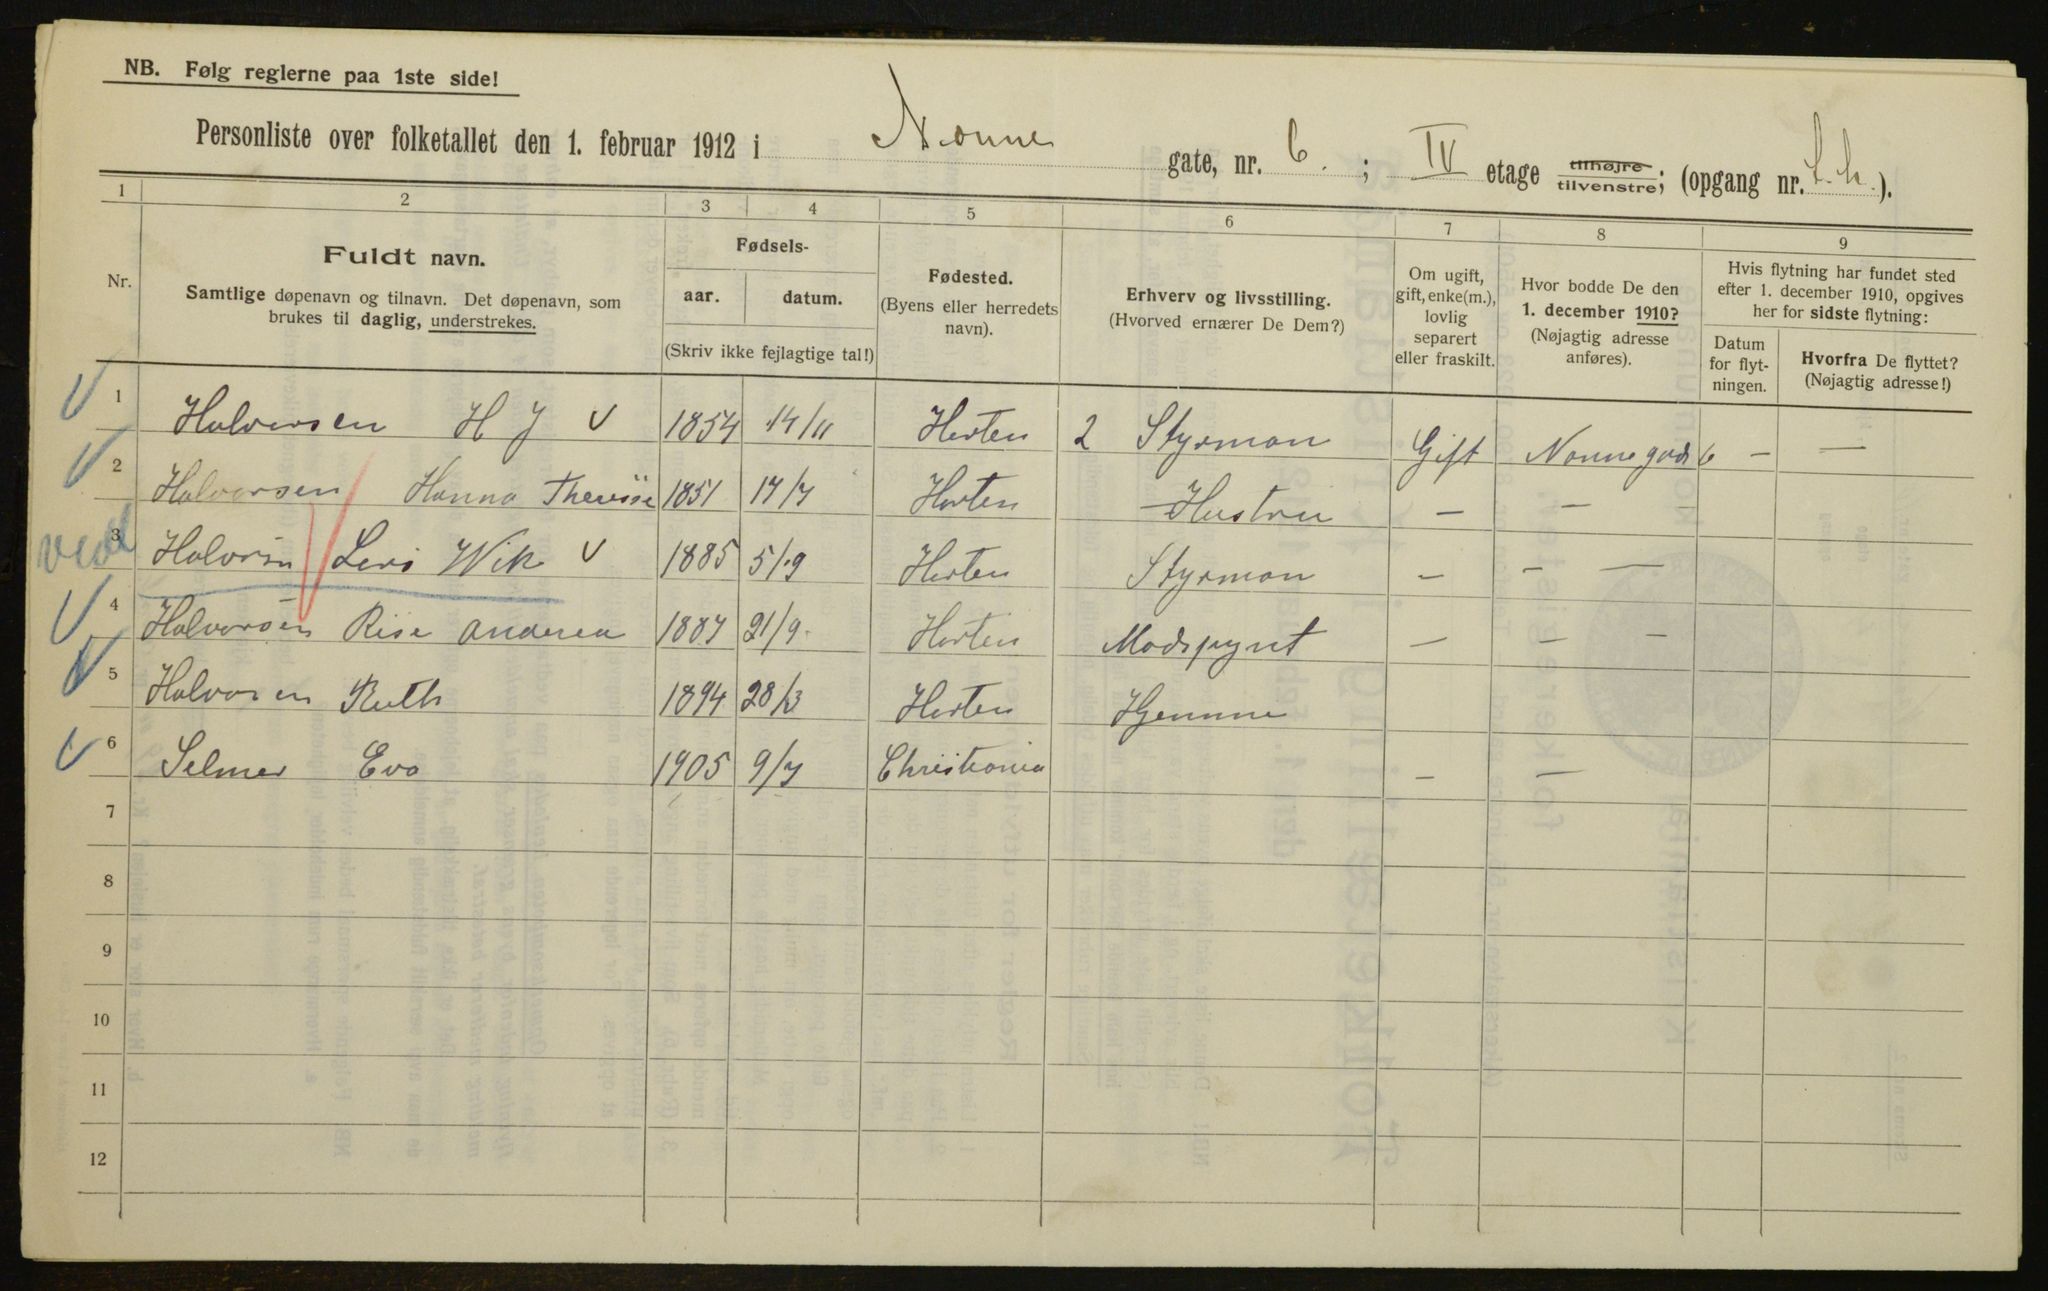 NB. Følg reglerne paa 1ste side!
Personliste over folketallet den 1. februar 1912 i Nonne gate, nr. 6. ; IV etage tilhøjre tilvenstre; (opgang nr. t.h.).
1 2 3 4 5 6 7 8 9
Nr.
Fuldt navn.
Samtlige døpenavn og tilnavn. Det døpenavn, som
brukes til daglig, understrekes.
Fødsels-
aar. datum.
(Skriv ikke fejlagtige tal!)
Fødested.
(Byens eller herredets
navn).
Erhverv og livsstilling.
(Hvorved ernærer De Dem?)
Om ugift,
gift, enke(m.),
lovlig
separert
eller fraskilt.
Hvor bodde De den
1. december 1910?
(Nøjagtig adresse
anføres).
Hvis flytning har fundet sted
efter 1. december 1910, opgives
her for sidste flytning:
Datum
for flyt-
ningen.
Hvorfra De flyttet?
(Nøjagtig adresse!)
1 Halvorsen H J v 1854 14/11 Horten 2 Styrman Gift Nonnegade 6 — —
2 Halvorsen Hanna Therisse 1851 17/7 Horten Hustru — —
3 Halvorsen Wik v 1885 5/9 Horten Styrman — — —
4 Halvorsen Andrea 1887 21/9 Horten Modspynt — — —
5 Halvorsen Ruth 1894 28/3 Horten Hjemme
6 Selmer Eva 1905 9/7 Christiania — —
7
8
9
10
11
12